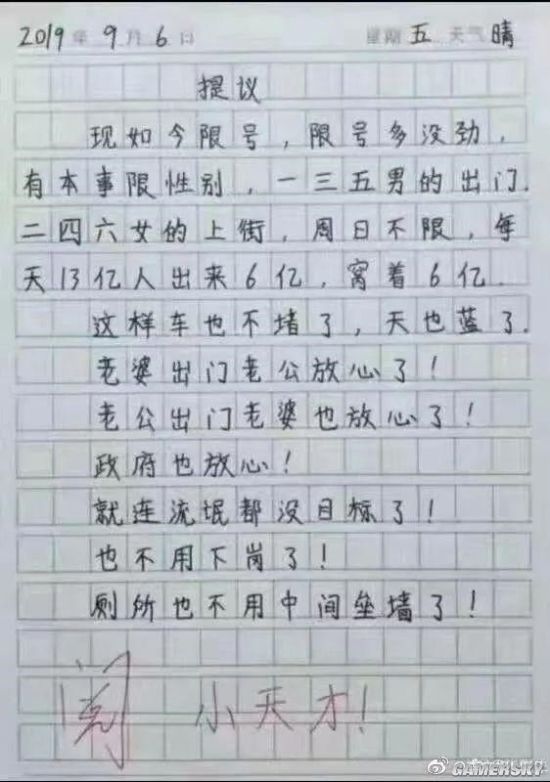 2019年9月6日 星期五 天气晴
提议
现如今限号，限号多没劲，
有本事限性别，一三五男的出门.
二四六女的上街，周日不限，每
天13亿人出来6亿，窝着6亿.
这样车也不堵了，天也蓝了.
老婆出门老公放心了！
老公出门老婆也放心了！
政府也放心！
就连流氓都没目标了！
也不用下岗了！
厕所也不用中间垒墙了！
阅 小天才！
GAMERSKY